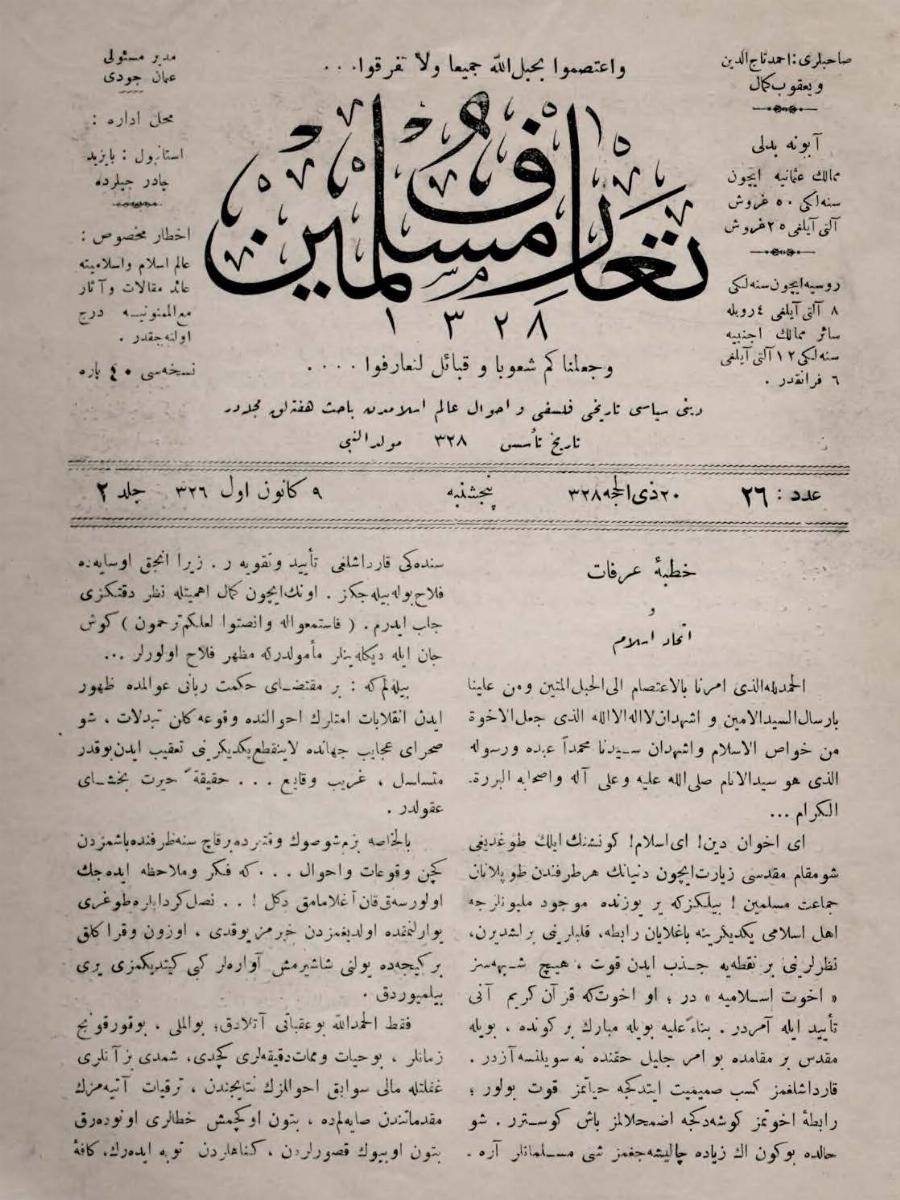 صاحبلری : احمد تاج الدین
و یعقوب کمال
آبونه بدلی
ممالك عثمانیه ایچون
سنه لکی ٥٠ غروش
آلتی آیلغی ٢٥ غروش
روسیه ایچون سنه لکی
٨ آلتی آیلغی ٤ روبله
سائر ممالك اجنبیه
سنه لکی ١٢ آلتی آیلغی
٦ فرانقدر .
واعتصموا بحبل الله جمیعا ولا تفرقوا . . .
تعارف مسلمین
١٣٢٨
وجعلنا کم شعوبا و قبائل لتعارفوا . . . .
دینی سیاسی تاریخی فلسفی و احوال عالم اسلامدن باحث هفته لق مجله در
تاریخ تأسس ٣٢٨ مولد النبی
مدیر مسئولی
عثمان جودی
محل اداره :
استانبول : بایزید
چادر جیلرده
اخطار مخصوص :
عالم اسلام واسلامیته
عائد مقالات وآثار
مع الممنونیـه درج
اولنه جقدر .
نسخه سی ٤٠ پاره
عدد : ٢٦ ٢٠ ذی الحجه ٣٢٨ پنجشنبه ٩ کانون اول ٣٢٦ جلد ٢
خطبۀ عرفات
و
اتحاد اسلام
الحمد لله الذی امرنا بالاعتصام الی الحبل المتین ومن علینا
بارسال السید الامین و اشهد ان لا اله الا الله الذی جعل الاخوة
من خواص الاسلام واشهد ان سـیدنا محمداً عبده ورسوله
الذی هو سید الانام صلی الله علیه وعلی آله واصحابه البررة
الکرام ...
ای اخوان دین! ای اسلام! کونشك ایلك طوغدیغی
شو مقام مقدسی زیارت ایچون دنیانك هر طرفندن طوپلانان
جماعت مسلمین ! بیلکز که یر یوزنده موجود ملیونلرجه
اهل اسلامی یکدیکرینه باغلایان رابطه، قلبلرینی برلشدیرن،
نظرلرینی بر نقطه یه جـذب ایدن قوت ، هیچ شـبهه سز
« اخوت اسـلامیه » در ؛ او اخوت که قرآن کریم آنی
تأیید ایله آمردر . بناءً علیه بویله مبارك بر کونده ، بویله
مقدس بر مقامده بو امر جلیل حقنده نه سویلنسه آزدر .
قارداشلغمز کسب صمیمیت ایتدکجه حیاتمز قوت بولور ؛
رابطۀ اخوتمز کوشه دکجه اضمحلالمز باش کوسترر . شو
حالده بوکون اك زیاده چالیشه جغمز شی مسـلمانلر آره .
سنده کی قارداشلغی تأیید وتقویه ر . زیرا انجق او سایه ده
فلاح بوله بیله جکز . اونك ایچون کمال اهمیتله نظر دقتکزی
جلب ایدرم . ( فاستمعوا له وانصتوا لعلکم ترحمون ) کوش
جان ایله دیکله ینلر مأمولدر که مظهر فلاح اولورلر ...
بیله لم که : بر مقتضـای حکمت ربانی عوالمده ظهور
ایدن انقلابات امتلرك احوالنده وقوعه کلن تبدلات ، شو
صحرای عجایب جهانده لاینقطع یکدیکرینی تعقیب ایدن بوقدر
متسلسل ، غریب وقایع . . . حقیقةً حیرت بخشـای
عقولدر .
بالخاصه بزم شو صوك وقتلرده بر قاچ سنه ظرفنده باشمزدن
کچن وقوعات واحوال . . . که فکر وملاحظه ایده جك
اولورسه ق قان آغلامامق دکل ! . . نصل کردابلره طوغری
یوارلنمقده اولدیغمزدن خبرمز یوقدی ، اوزون وقراکلق
بر کیجه ده یولنی شاشیرمش آواره لر کبی کیتدیکمزی یری
بیلمیوردق .
فقط الحمدالله بو عقباتی آتلادق؛ بو المللی ، بو قورقونج
زمانلر ، بو حیات وممات دقیقه لری کچدی، شمدی بز آنلری
غفلتله مالی سوابق احوالمزك نتایجندن ، ترقیات آتیه مزك
مقدماتندن صایه لم ده ، بتون او کچمش خطالری اونوده رق
بتون او بیوك قصورلردن ، کناهلردن توبه ایده رك، کافۀ